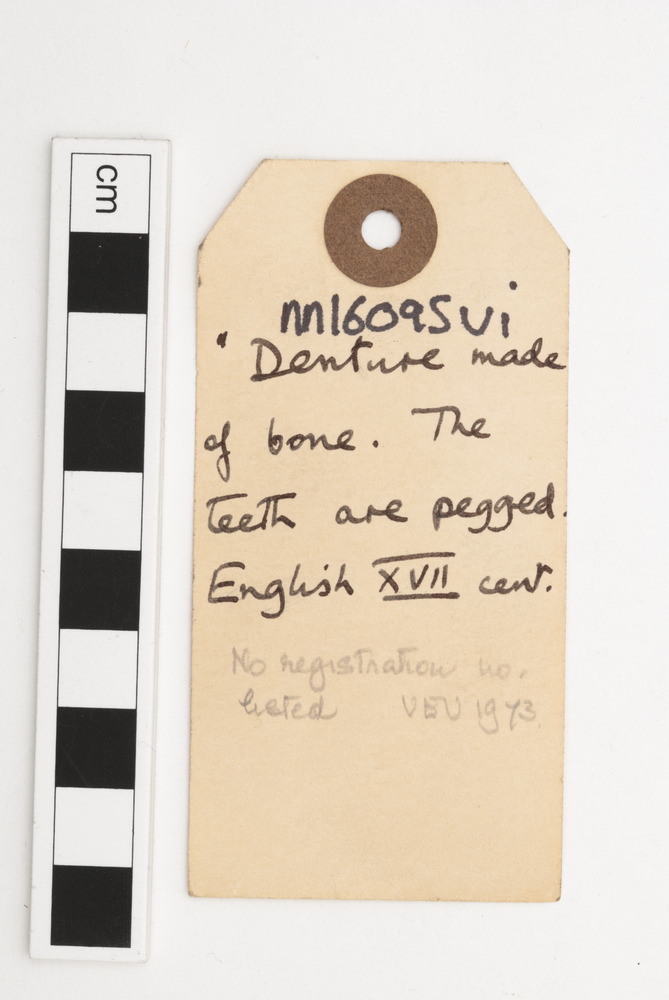 cm
M16095vi
" Denture made
of bone. The
teeth are pegged.
English XVII cent.
No registration no.
listed VEU 1973